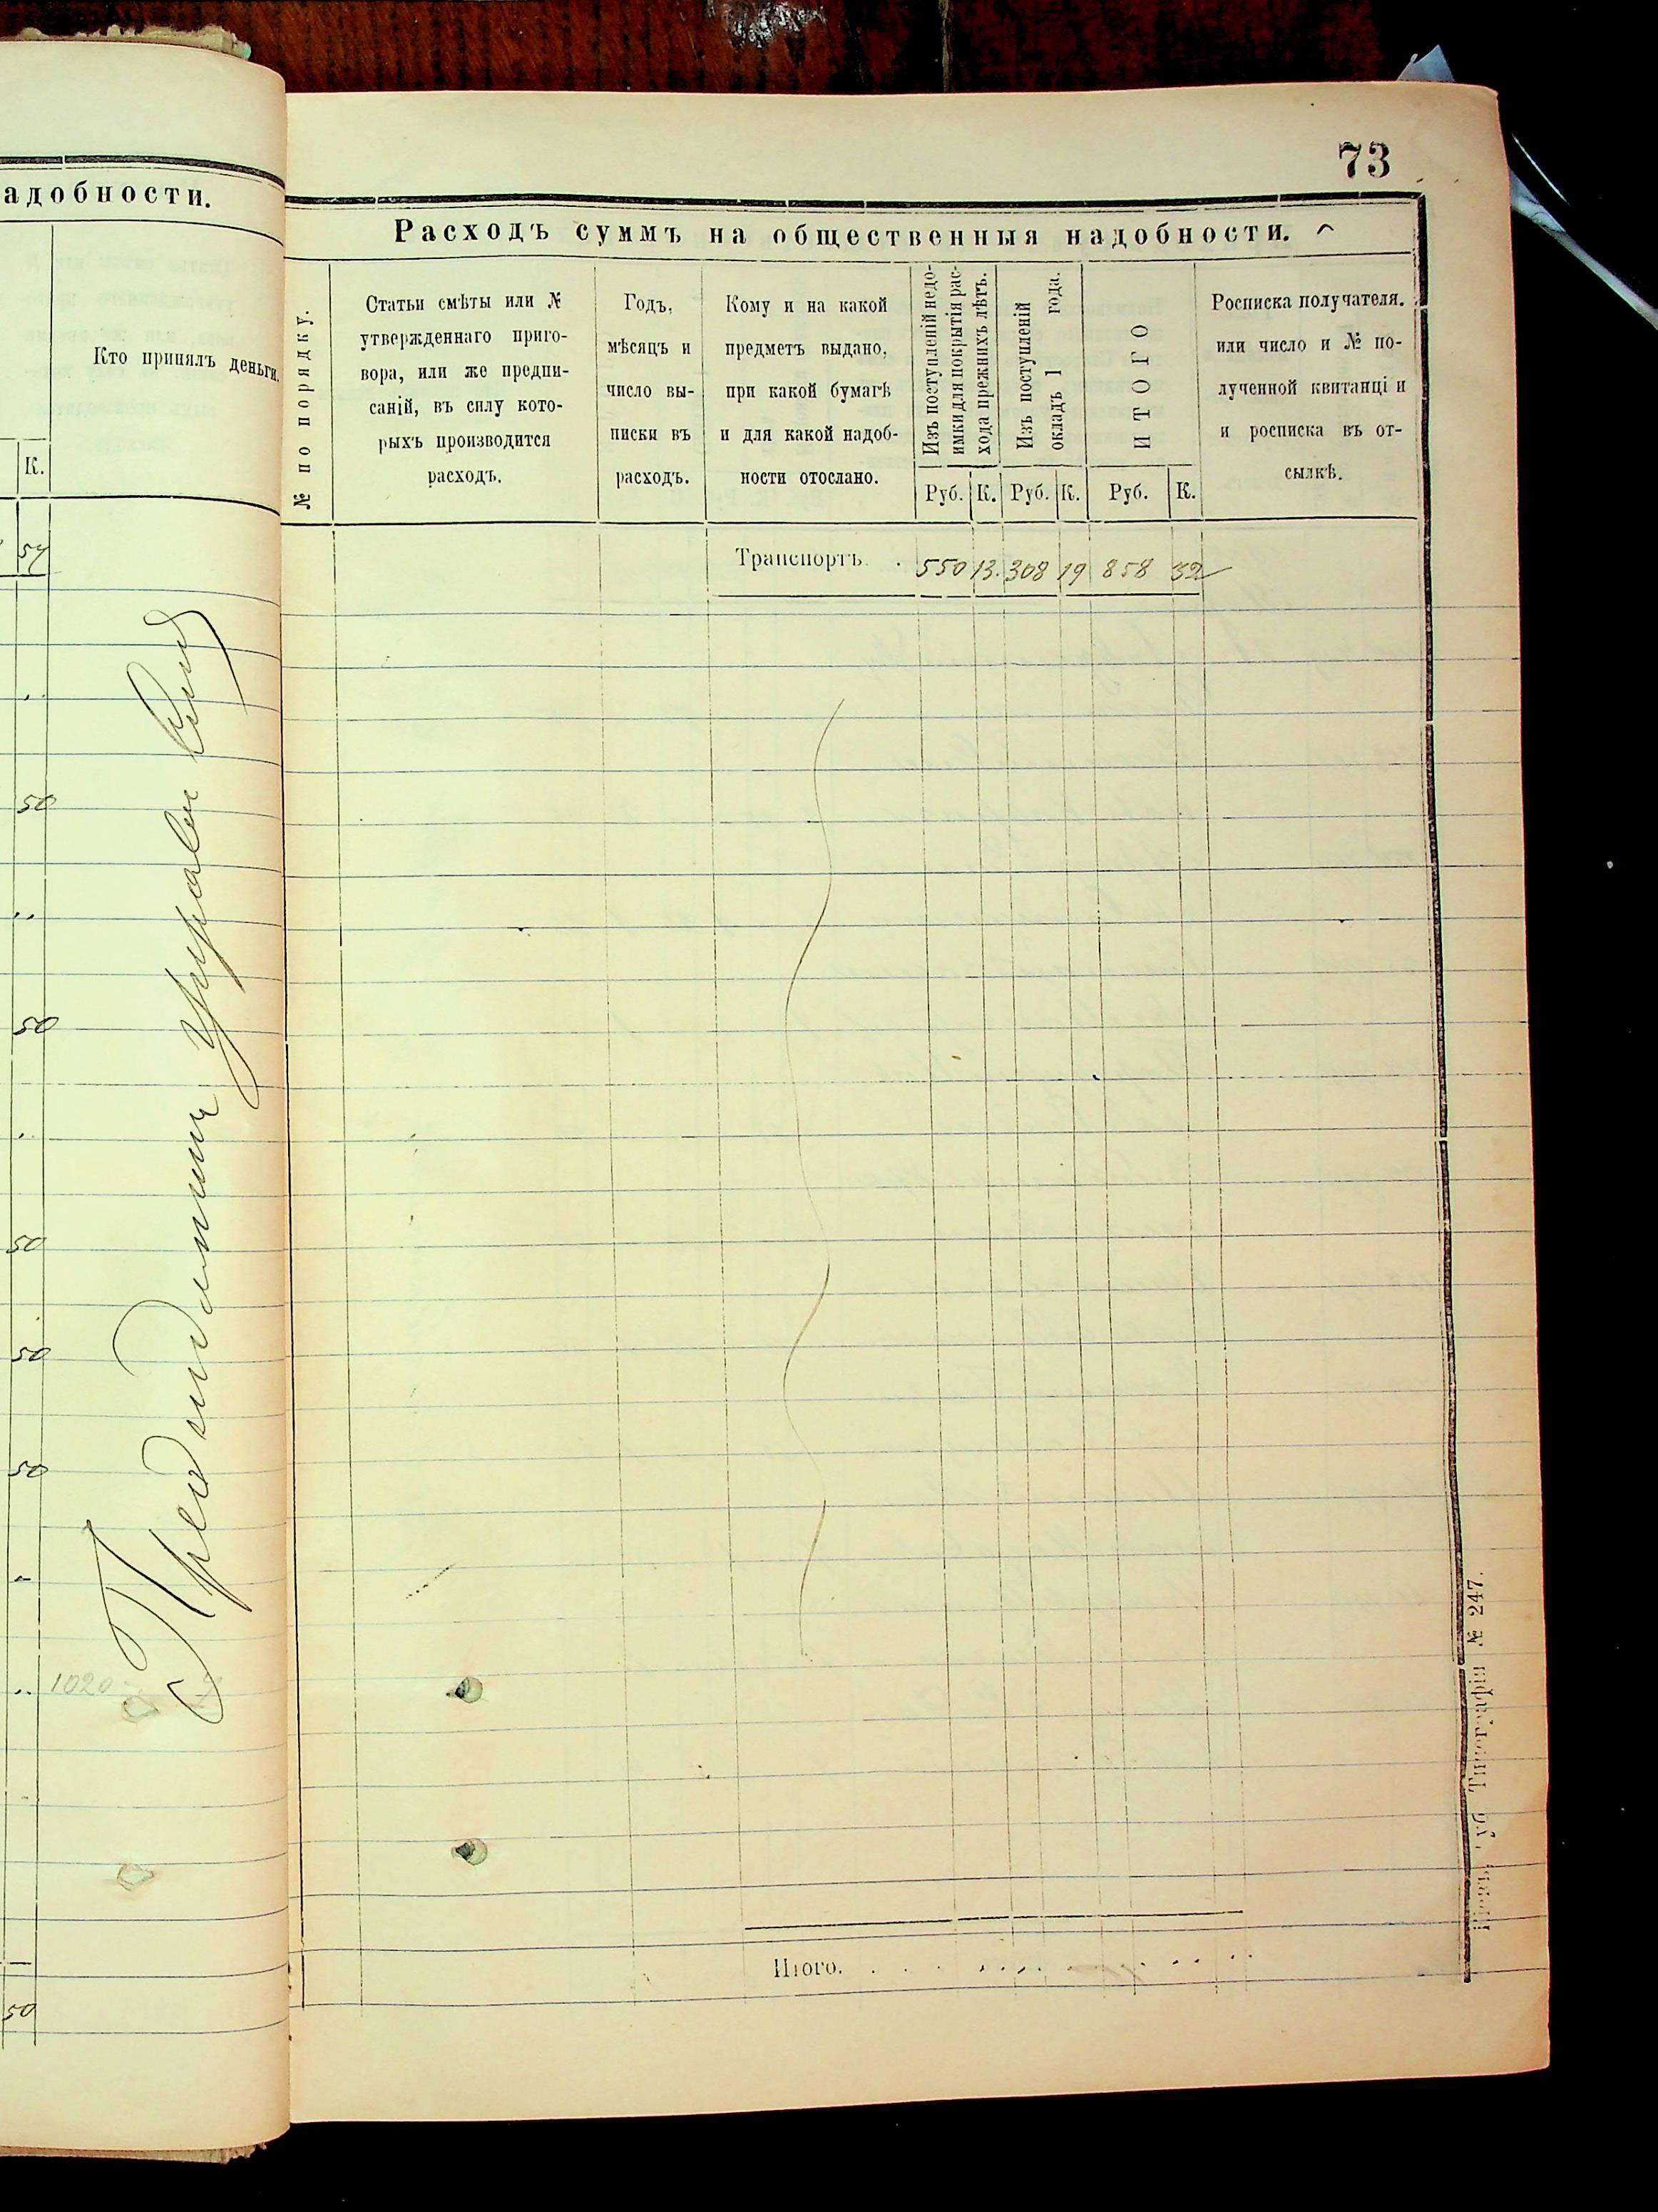 адобности.
Кто принялъ деньги.
К.
54
50
50
50
50
50
1020
50
73
Расходъ суммъ на общественныя надобности.
№ по порядку.
Статьи смѣты или №
утвержденнаго приго-
вора, или же предпи-
саній, въ силу кото-
рыхъ производится
расходъ.
Годъ,
мѣсяцъ и
число вы-
писки въ
расходъ.
Кому и на какой
предметъ выдано,
при какой бумагѣ
и для какой надоб-
ности отослано.
Изъ поступленій недо-
имки для покрытія рас-
хода прежнихъ лѣтъ.
Изъ поступленій
окладъ 1 года.
ИТОГО
Росписка получателя.
или число и № по-
лученной квитанціи
и росписка въ от-
сылкѣ.
Руб. К. Руб. К. Руб. К.
Транспортъ. . 550 13. 308 19 858 32
Итого. . . .
Типографія № 247.